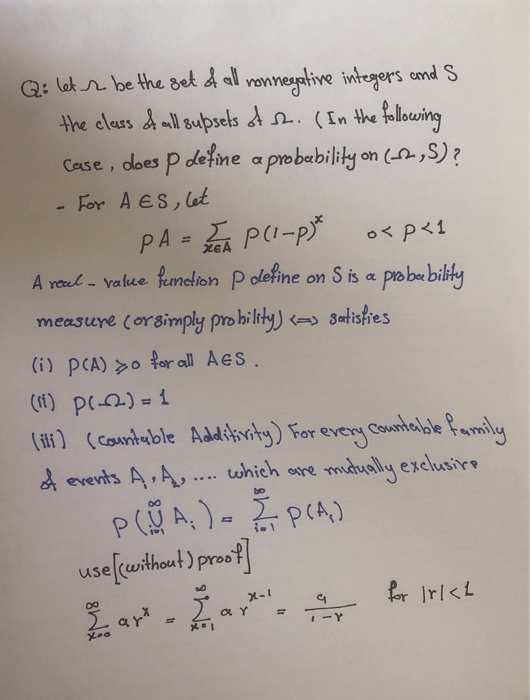 Q: let Ω be the set of all nonnegative integers and S
the class of all supsets of Ω. (In the following
case, does P define a probability on (Ω,S)?
- For A ∈ S, let
PA = Σ_{x∈A} P(1-p)^x 0< p<1
A real-value function P define on S is a probability
measure (or simply probility) <=> satisfies
(i) P(A) ≥ 0 for all A∈S.
(ii) P(Ω) = 1
(iii) (countable Additivity) For every countable family
of events A₁, A₂, .... which are mutually exclusive
P(⋃_{i=1}^{∞} A_i) = Σ_{i=1}^{∞} P(A_i)
use [(without) proof]
Σ_{x=0}^{∞} ar^x = Σ_{x=1}^{∞} ar^{x-1} = a/(1-r) for |r|<1